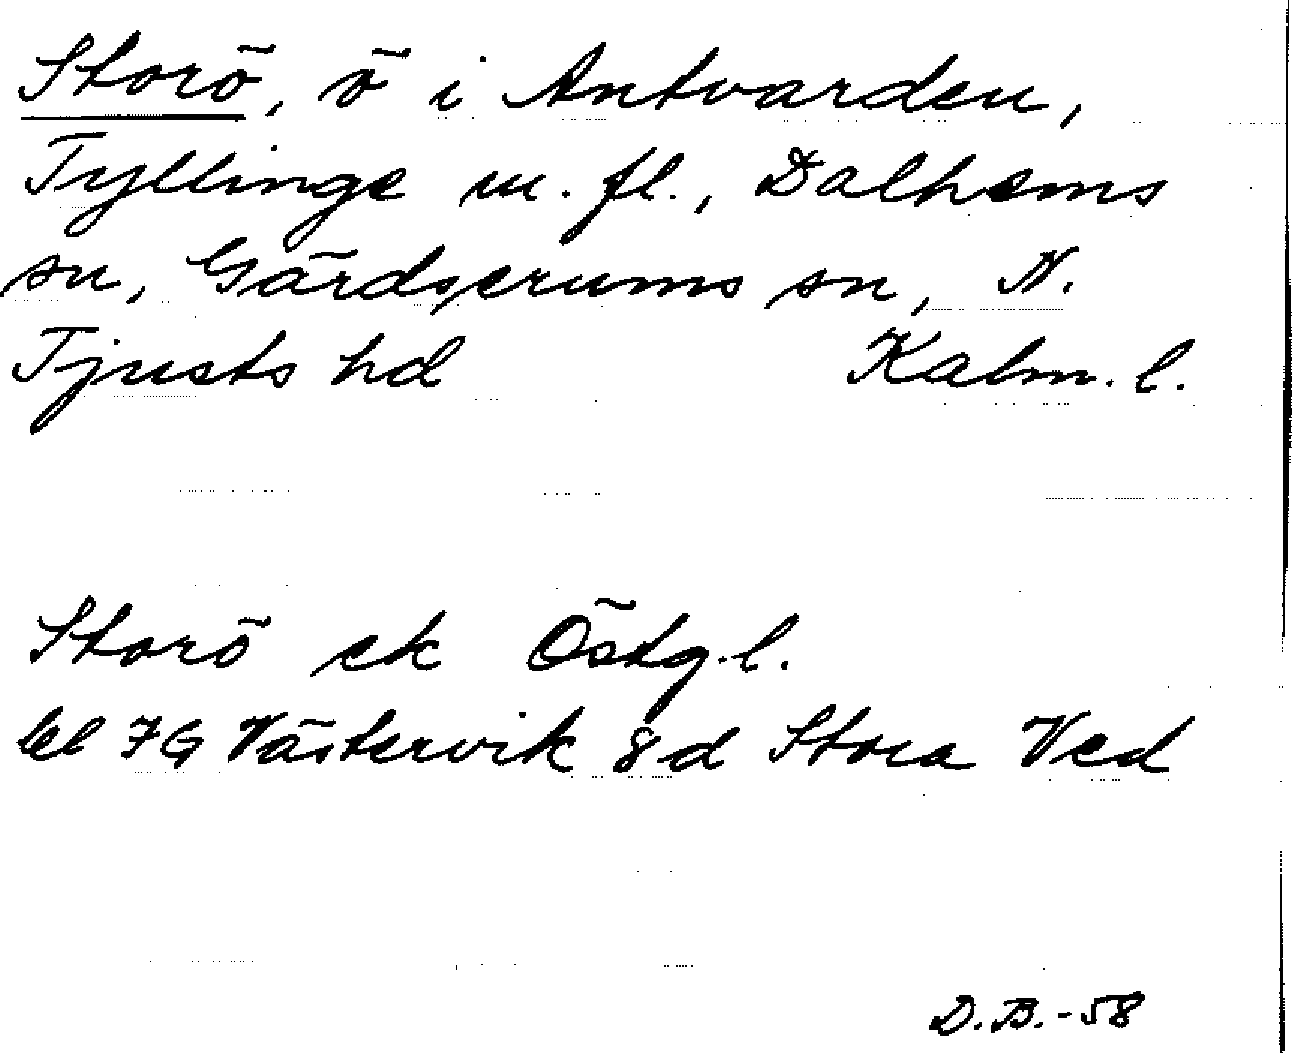 Storö, ö i Antvarden,
Tyllinge m. fl., Dalhems
sn, Gärdserums sn, N.
Tjusts hd Kalm. l.
Storö ek Östg. l.
bl 7G Västervik 8d Stora Ved
D.B.-58